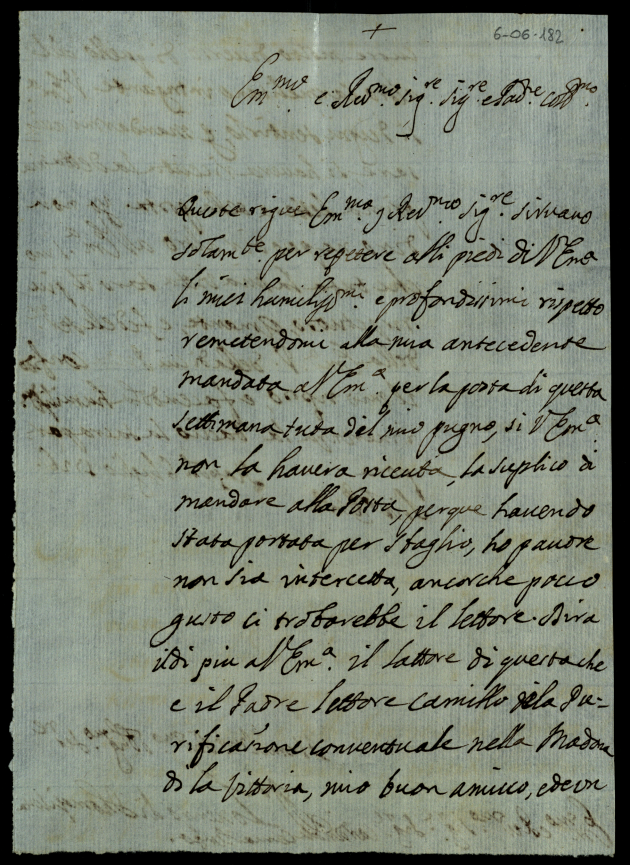 +
6-06-182
Em.mo e Red.mo sig.re sig.re e Pad.re Col.mo
Queste rigue Em.mo e Red.mo sig.re siruano
solam.te per repetere alli piedi di V Em.a
li miei humiliss.mi e profondissimi rispetto
remetendomi alla mia antecedente
mandata a V Em.a per la posta di questa
settimana tuta del mio pugno, si V Em.a
non la hauera riceuta, la suplico di
mandare alla Posta, perque hauendo
stata portata per sbaglio, ho pauore
non sia intercetta, ancorche poco
gusto ci trobarebbe il lettore. Dira
il di piu a V Em.a il lattore di questa che
e il Padre lettore Camillo dela Pu=
rificazione conventuale nella Madona
di la Vittoria, mio buon amico, ede vn